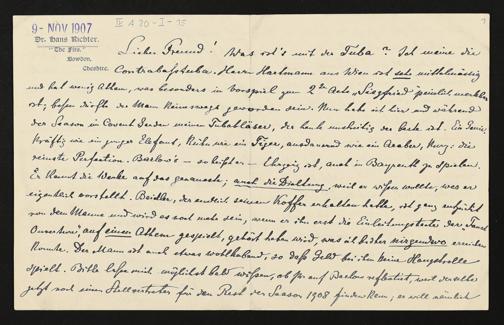 9-NOV 1907
IV A 30-I-15
Dr. Hans Richter.
"The Firs,"
Bowdon,
Cheshire.
1
Lieber Freund! Was ist's mit der Tuba? Ich meine die
Contrabasstuba. Herrn Hartmann aus Wien ist sehr mittelmässig
und hat wenig Athem, was besonders im Vorspiel zum 2ten Acte „Siegfried" peinlich
ist; besser dürfte der Mann keineswegs geworden sein. Nun habe ich hier und während
der Season in Covent Garden meinen Tubabläser, der heute unstreitig der beste ist. Ein Genie;
kräftig wie ein junger Elefant, kühn wie ein Tiger, ausdauernd wie ein Araber, kurz: die
reinste Perfection. Barlow's — so heisst er — Ehrgeiz ist, auch in Bayreuth zu spielen.
Er kennt die Werke auf das genaueste, auch die Dichtung, weil er wissen wollte, was er
eigentlich vorstellt. Beidler, der endlich seinen Koffer erhalten hatte, ist ganz entzückt
von dem Manne und wird es erst recht sein, wenn er ihn erst die Einleitungstakte der Faust
Ouverture, auf einen Athem gespielt, gehört haben wird, was ich bisher nirgendwo erreichen
konnte. Der Mann ist auch etwas wohlhabend, so dass Geld bei ihm keine Hauptrolle
spielt. Bitte lasse mich möglichst bald wissen, ob Ihr auf Barlow reflectirt, weil der
jetzt noch einen Stellvertreter für den Rest der Season 1908 finden kann; er will nämlich